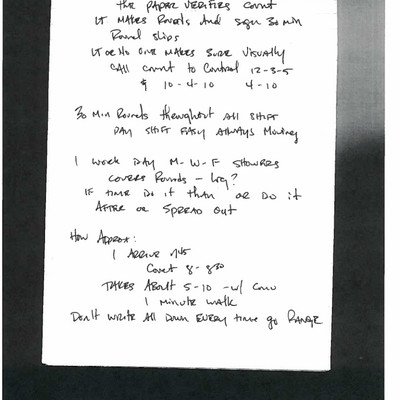 the PAPER VERIFIES COUNT
LT MAKES Rounds And sign 30 min
Round slips
LT OR NO ONE MAKES SURE VISUALLY
CALL COUNT to Control 12-3-5
10-4-10 4-10
30 Min Rounds throughout All SHIFT
DAY SHIFT EASY ALWAYS Moving
1 WORK DAY M-W-F SHOWERS
COVERS Rounds - Log?
IF TIME DO it than OR DO it
AFTER OR SPREAD OUT
How Approx:
1 ARRIVE 745
Count 8-830
TAKES About 5-10 - w/ Conv
1 MINUTE WALK
Don't WRITE All Down EVERY time go RANGE